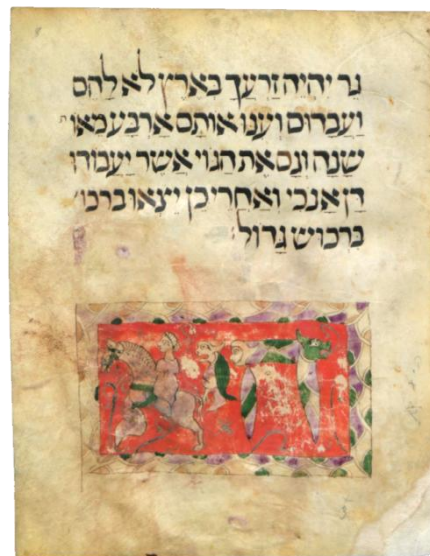 גר יהיה זרעך בארץ לא להם
ועבדום וענו אותם ארבע מאות
שנה וגם את הגוי אשר יעבודו
דן אנכי ואחרי כן יצאו ברכו'
ברכוש גדול